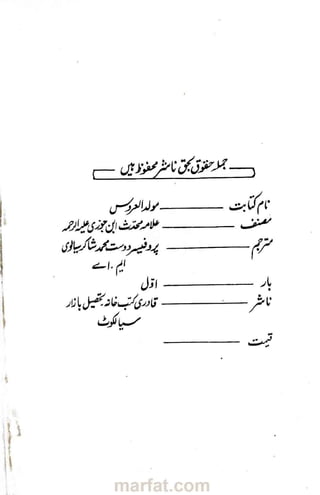 جملہ حقوق بحق ناشر محفوظ ہیں
نام کتابت ـــــــ مولد العروس
مصنف ـــــــ علامہ محدث ابن جوزی علیہ الرحمہ
مترجم ـــــــ پروفیسر دوست محمد شاکر سیالوی
ایم۔اے
بار ـــــــ اوّل
ناشر ـــــــ قادری کتب خانہ تحصیل بازار
سیالکوٹ
قیمت ـــــــ
marfat.com